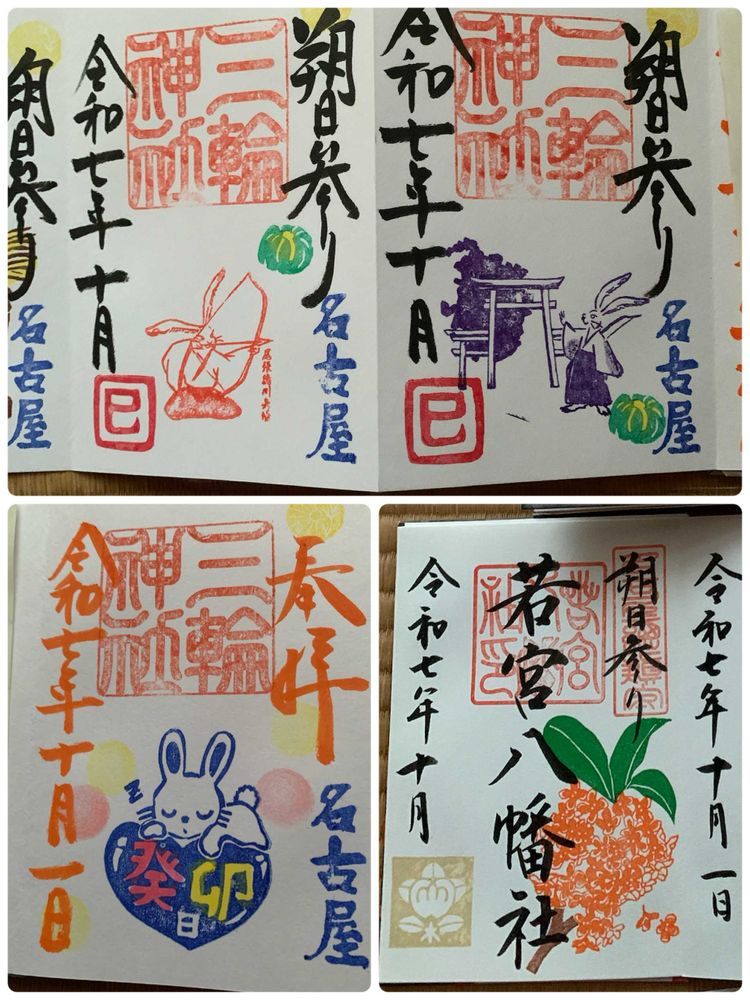 朔日参り
名古屋
三輪神社
令和七年十月
巳
朔日参り
名古屋
三輪神社
尾張徳川矢場
令和七年十月
巳
朔日参り
名古屋
奉拝
名古屋
三輪神社
z
癸卯
日
令和七年十月一日
令和七年十月一日
朔日参り
若宮八幡社
令和七年十月